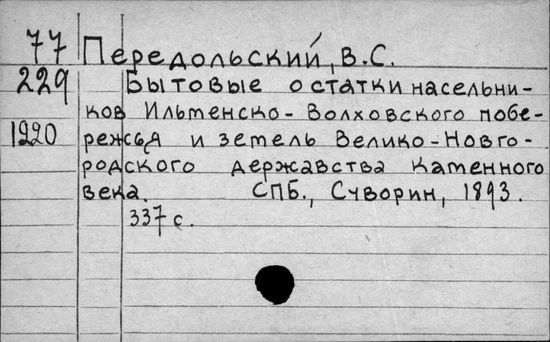 77 Передольский, В.С.
229 Бытовые остатки насельни-
ков Ильменско-Волховского побе-
1220 режья и земель Велико-Новго-
родского державства каменного
века. СПБ., Суворин, 1893.
337 с.